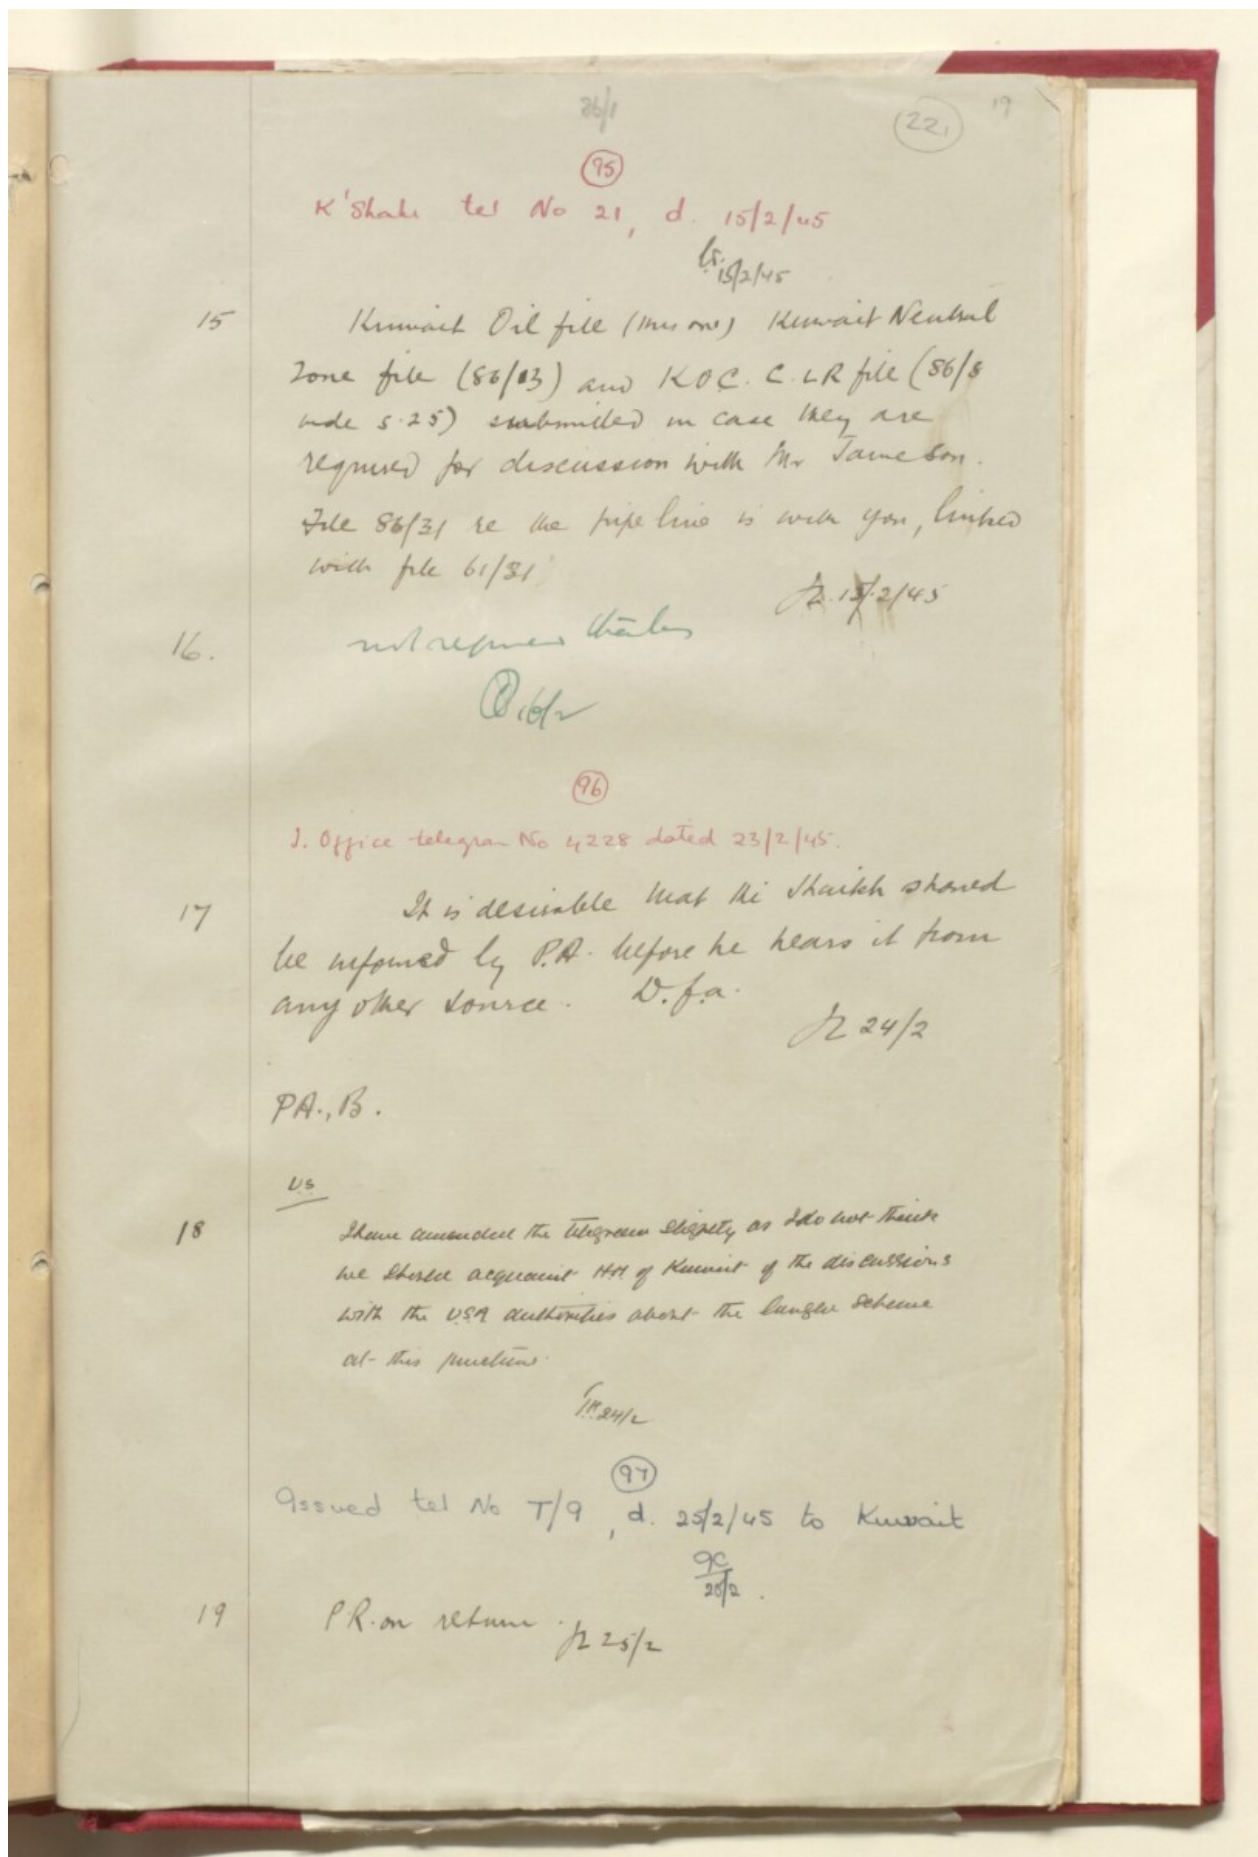 86/1
221
19
95
K'Shahr tel No 21, d. 15/2/45
15/2/45
15
Kuwait Oil file (this one) Kuwait Neutral
Zone file (86/13) and KOC. C.LR file (86/8
vide s.25) submitted in case they are
required for discussion with Mr Jameson.
File 86/31 re the pipe line is with you, linked
with file 61/31
15/2/45
16.
not required thanks
16/2
96
I. Office telegram No 4228 dated 23/2/45.
17
It is desirable that the Shaikh should
be informed by P.A. before he hears it from
any other source. D.f.a.
24/2
PA., B.
US
18
I have amended the telegram slightly as I do not think
we should acquaint HH of Kuwait of the discussions
with the USA authorities about the larger scheme
at this juncture.
24/2
97
Issued tel No T/9, d. 25/2/45 to Kuwait
25/2.
19
P.R. on return.
25/2